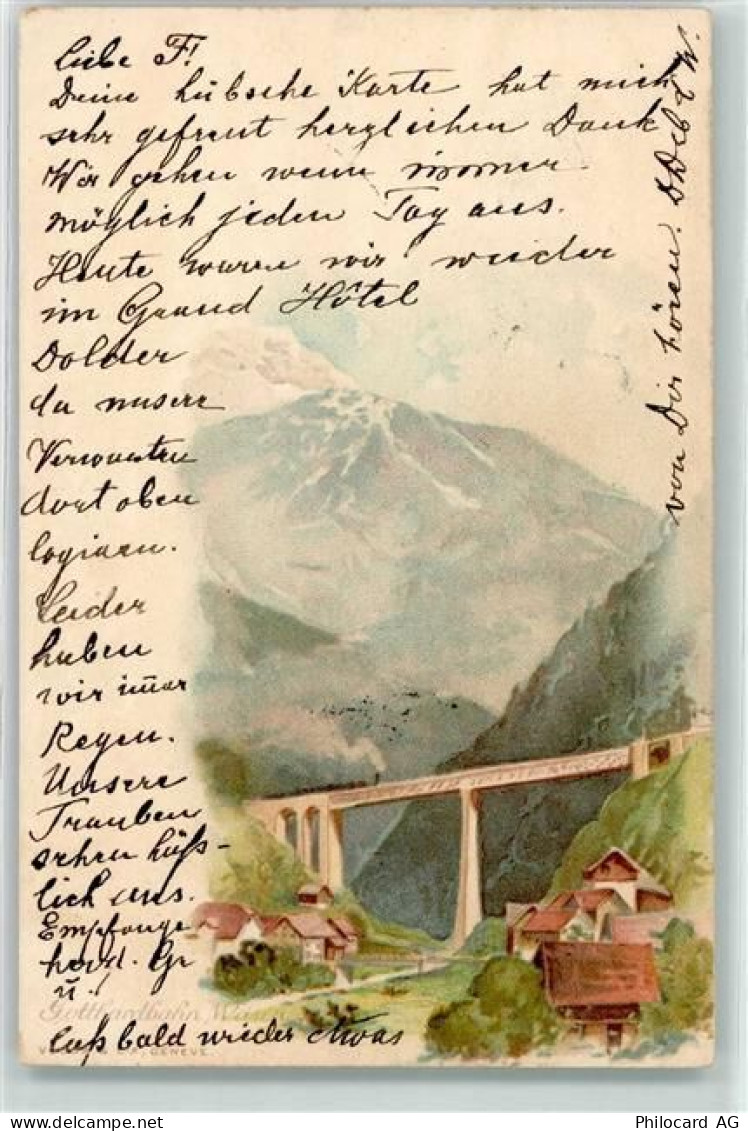 Liebe F!
Deine hübsche Karte hat mich
sehr gefreut herzlichen Dank
Wir gehen wenn immer
möglich jeden Tag aus.
Heute waren wir wieder
im Grand Hôtel
Dolder
da unsere
Verwandten
dort oben
logieren.
Leider
haben
wir im̅er
Regen.
Unsere
Trauben
sehen häß-
lich aus.
Empfange
herzl. Gr
u!
laß bald wieder etwas
von Dir hören.
Gotthardbahn
GENÈVE.
Philocard AG